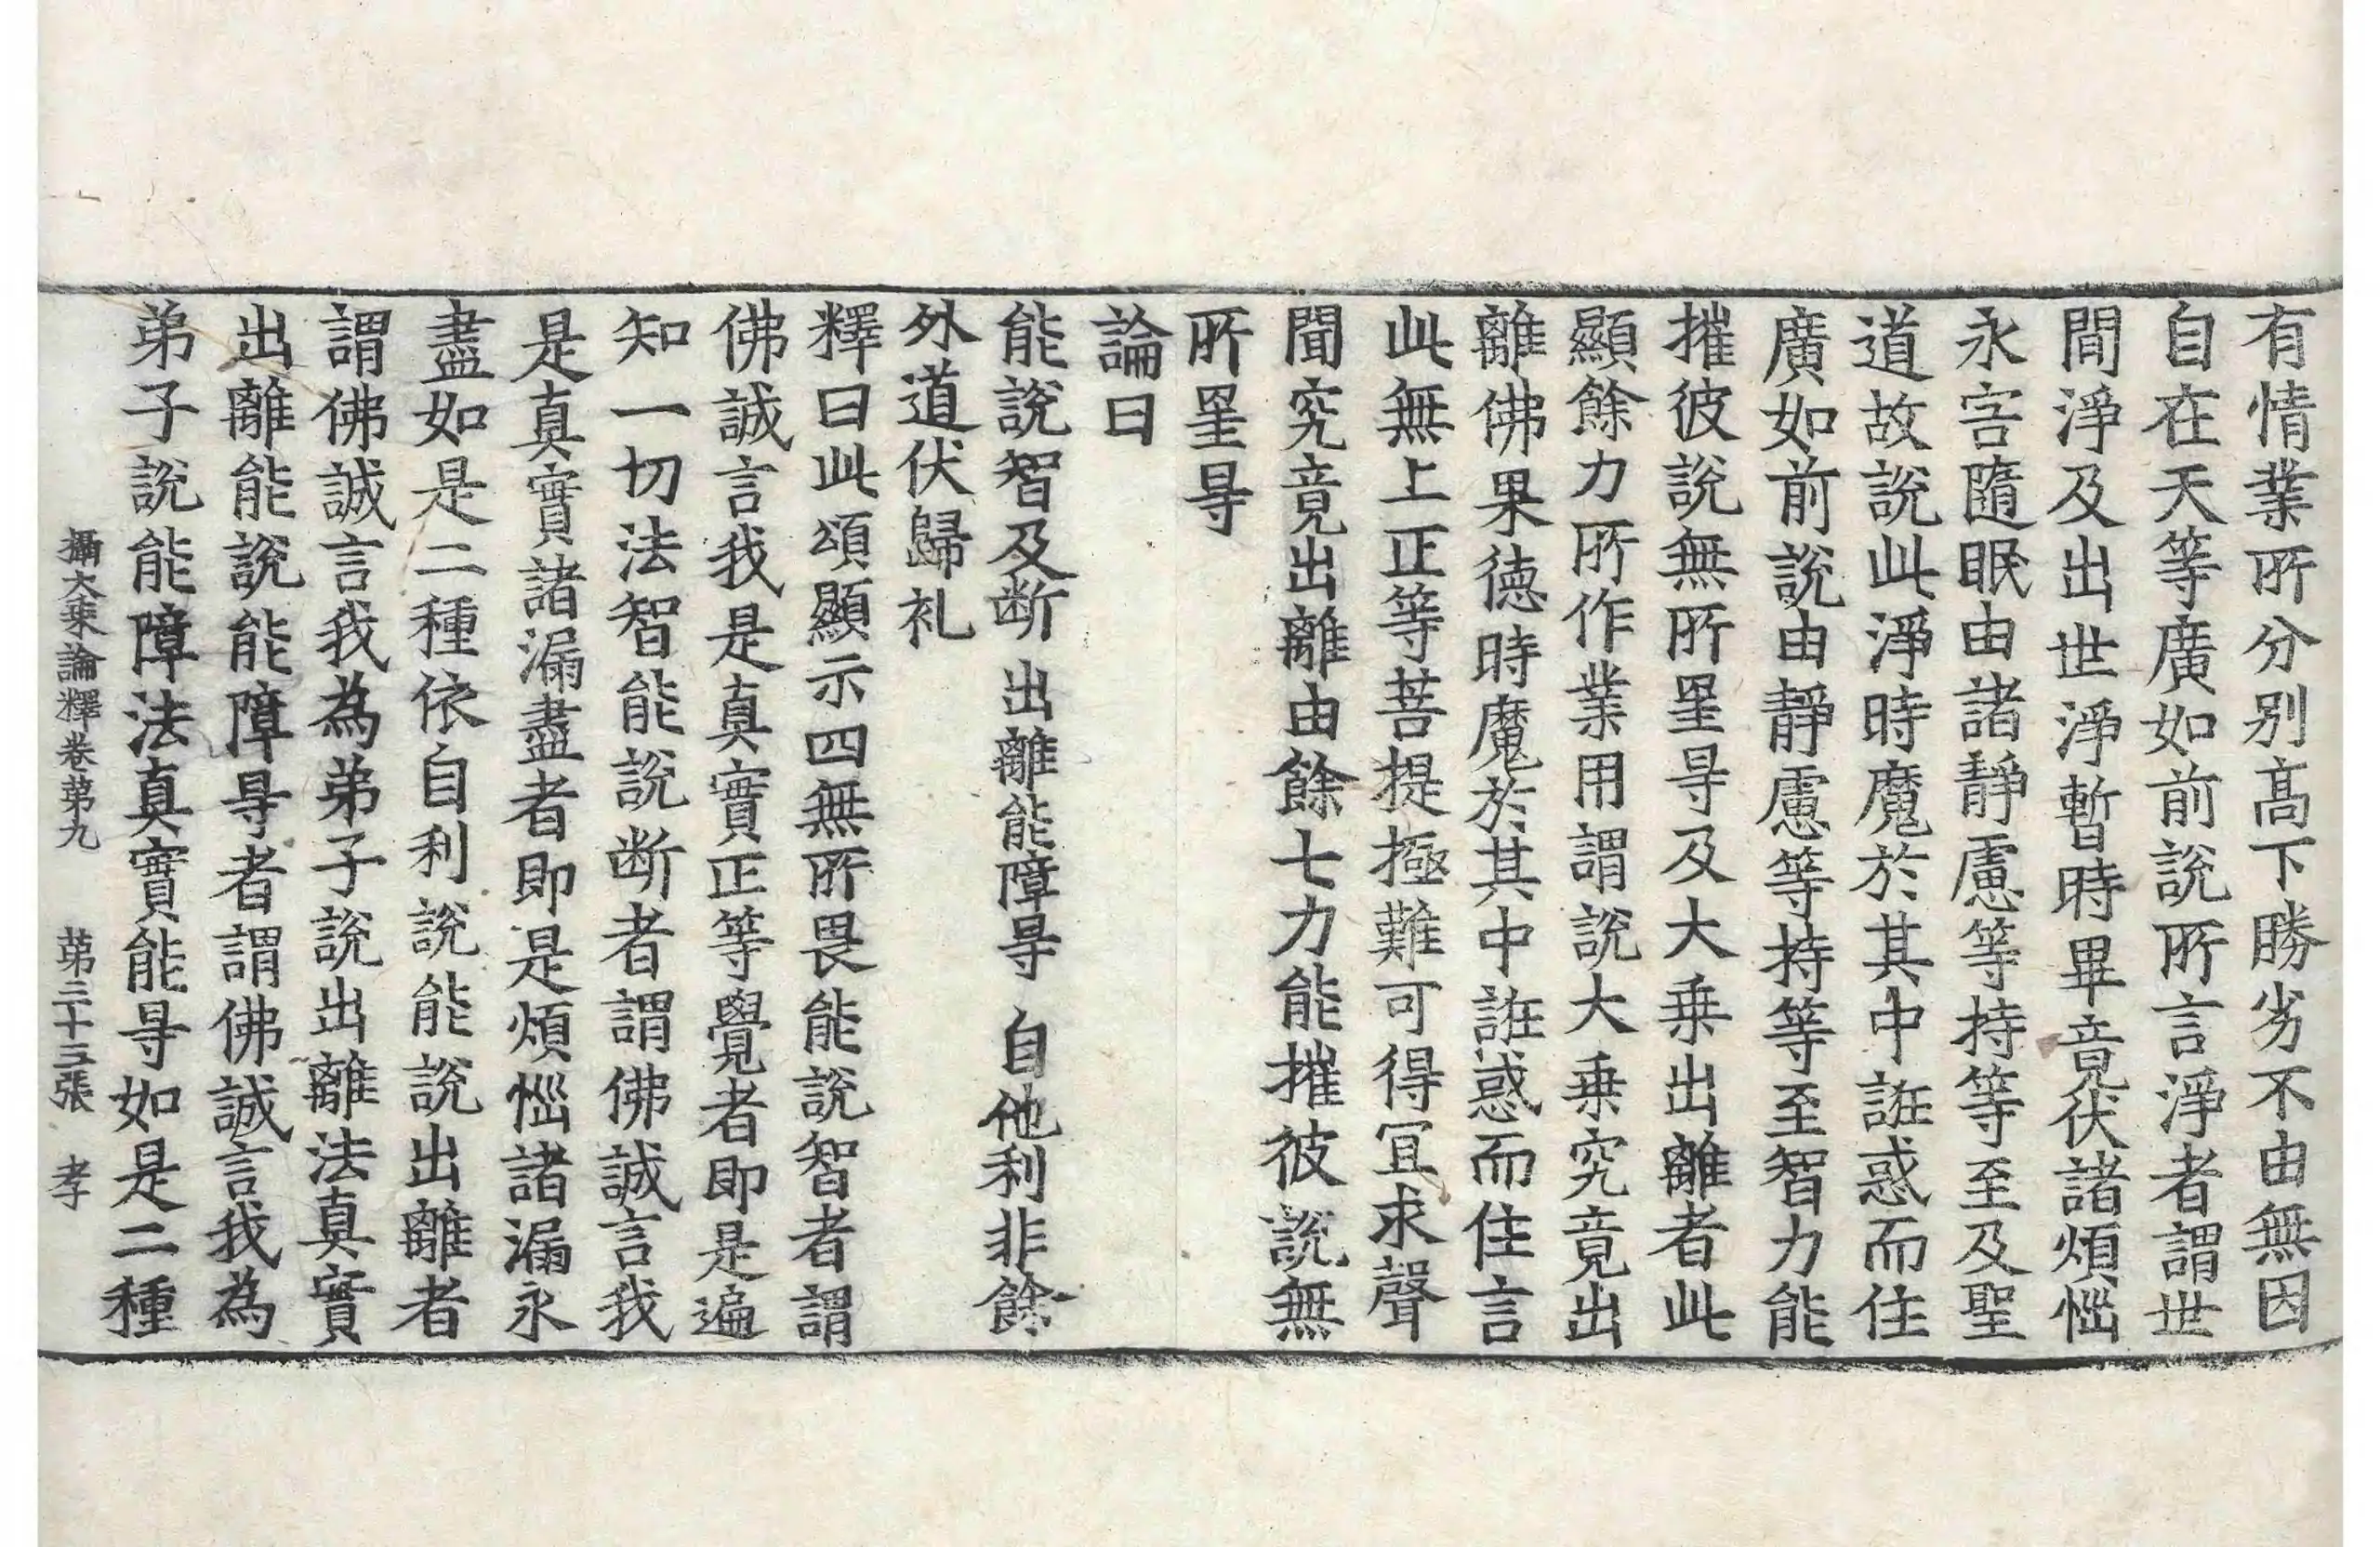 有情業所分別高下勝劣不由無因
自在天等廣如前說所言淨者謂世
間淨及出世淨暫時畢竟伏諸煩惱
永害隨眠由諸靜慮等持等至及聖
道故說此淨時魔於其中誑惑而住
廣如前說由靜慮等持等至智力能
摧彼說無所罣㝵及大乗出離者此
顯餘力所作業用謂說大乗究竟出
離佛果德時魔於其中誑惑而住言
此無上正等菩提極難可得冝求聲
聞究竟出離由餘七力能摧彼說無
所罣㝵
論曰
能說智及断 出離能障㝵 自他利非餘
外道伏歸礼
釋曰此頌顯示四無所畏能說智者謂
佛誠言我是真實正等覺者即是遍
知一切法智能說断者謂佛誠言我
是真實諸漏盡者即是煩惱諸漏永
盡如是二種依自利說能說出離者
謂佛誠言我為弟子說出離法真實
出離能說能障㝵者謂佛誠言我為
弟子說能障法真實能㝵如是二種
攝大乗論釋卷第九 第三十三張 孝